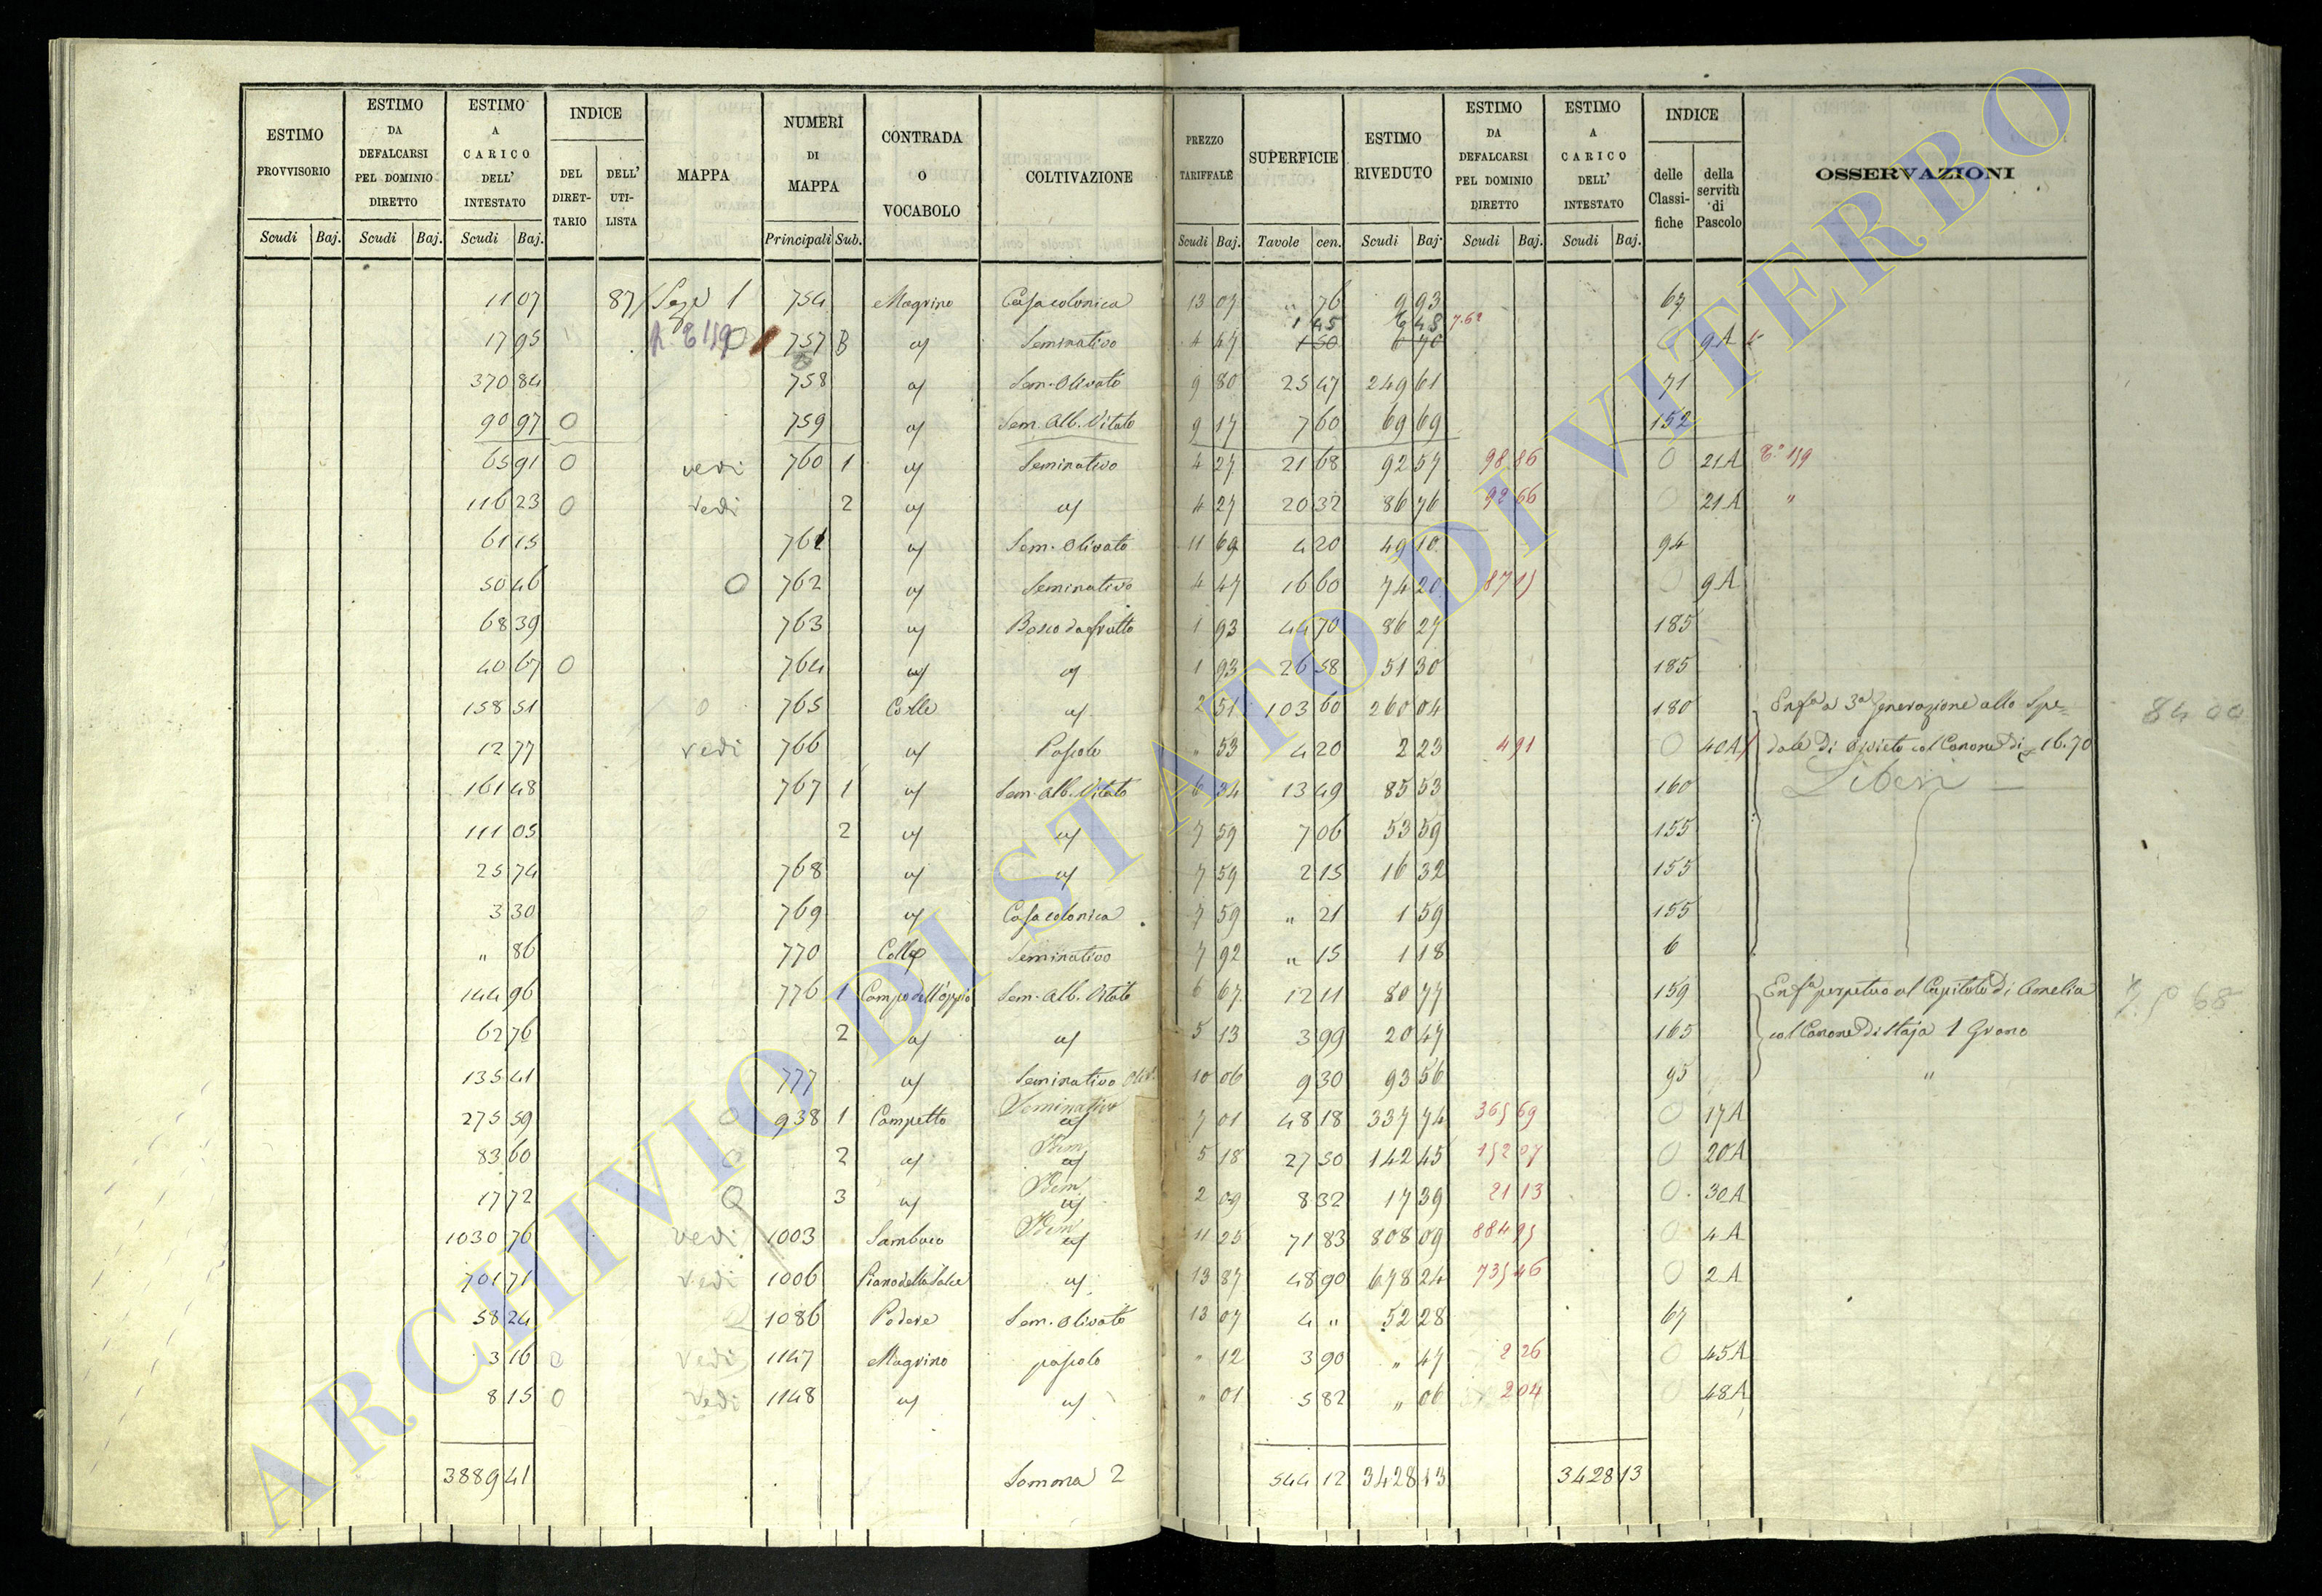 ESTIMO PROVVISORIO | ESTIMO DA DEFALCARSI PEL DOMINIO DIRETTO | ESTIMO A CARICO DELL' INTESTATO | INDICE DEL DIRETTARIO | DELL' UTILISTA | MAPPA | NUMERI DI MAPPA | CONTRADA O VOCABOLO | COLTIVAZIONE | PREZZO TARIFFALE | SUPERFICIE | ESTIMO RIVEDUTO | ESTIMO DA DEFALCARSI PEL DOMINIO DIRETTO | ESTIMO A CARICO DELL' INTESTATO | INDICE delle Classifiche | della servitù di Pascolo | OSSERVAZIONI
Scudi Baj. | Scudi Baj. | Scudi Baj. | Principali Sub. | Scudi Baj. | Tavole cen. | Scudi Baj. | Scudi Baj. | Scudi Baj.
11 07 | 87 | 1 | 754 | Magrino | Casa colonica | 13 07 | " 76 | 9 93 | 67
1 45 | 6 48 | 7.62
17 95 | 757 B | a/ | Seminativo | 4 47 | 1 50 | 6 70 | 0 | 9A
370 84 | 758 | a/ | Sem. Olivato | 9 80 | 25 47 | 249 61 | 71
90 97 | 0 | 759 | a/ | Sem. Alb. Vitato | 9 17 | 7 60 | 69 69 | 152
65 91 | 0 | vedi | 760 1 | a/ | Seminativo | 4 27 | 21 68 | 92 57 | 98 86 | 0 | 21A
116 23 | 0 | vedi | 2 | a/ | a/ | 4 27 | 20 32 | 86 76 | 92 66 | 0 | 21A | "
61 15 | 761 | a/ | Sem. Olivato | 11 69 | 4 20 | 49 10 | 94
50 46 | 0 | 762 | a/ | Seminativo | 4 47 | 16 60 | 74 20 | 87 15 | 0 | 9A
68 39 | 763 | a/ | Bosco da frutto | 1 93 | 44 70 | 86 27 | 185
40 67 | 0 | 764 | a/ | a/ | 1 93 | 26 58 | 51 30 | 185
158 51 | 0 | 765 | Colle | a/ | 2 51 | 103 60 | 260 04 | 180 | Enfa a 3a generazione allo Spe=
12 77 | vedi | 766 | a/ | Pascolo | " 53 | 4 20 | 2 23 | 4 91 | 0 | 40A | dale di Orvieto col Canone di 16.70
161 48 | 767 1 | a/ | Sem. Alb. Vitato | 6 34 | 13 49 | 85 53 | 160 | Liberi
111 05 | 2 | a/ | a/ | 7 59 | 7 06 | 53 59 | 155
25 74 | 768 | a/ | a/ | 7 59 | 2 15 | 16 32 | 155
3 30 | 769 | a/ | Casa colonica | 7 59 | " 21 | 1 59 | 155
" 86 | 770 | Colle | Seminativo | 7 92 | " 15 | 1 18 | 6
144 96 | 776 1 | Campo dell'oppio | Sem. Alb. Vitato | 6 67 | 12 11 | 80 77 | 159 | Enfa perpetua al Capitolo di Amelia
62 76 | 2 | a/ | a/ | 5 13 | 3 99 | 20 47 | 165 | col Canone di Staja 1 Grano
135 41 | 777 | a/ | Seminativo Oliv. | 10 06 | 9 30 | 93 56 | 95 | "
275 59 | 0 | 938 1 | Campetto | Seminativo | 7 01 | 48 18 | 337 74 | 365 69 | 0 | 17A
83 60 | 0 | 2 | a/ | a/ | 5 18 | 27 50 | 142 45 | 152 07 | 0 | 20A
17 72 | 0 | 3 | a/ | a/ | 2 09 | 8 32 | 17 39 | 21 13 | 0 | 30A
1030 76 | vedi | 1003 | Sambuco | a/ | 11 25 | 71 83 | 808 09 | 884 95 | 0 | 4A
701 71 | vedi | 1006 | Piano della Salce | a/ | 13 87 | 48 90 | 678 24 | 735 46 | 0 | 2A
58 24 | 1086 | Podere | Sem. Olivato | 13 07 | 4 " | 52 28 | 67
3 16 | vedi | 1147 | Magrino | pascolo | " 12 | 3 90 | " 47 | 2 26 | 0 | 45A
8 15 | 0 | vedi | 1148 | a/ | a/ | " 01 | 5 82 | " 06 | 2 04 | 0 | 48A
3889 41 | Somma 2 | 544 12 | 3428 13 | 3428 13
ARCHIVIO DI STATO DI VITERBO